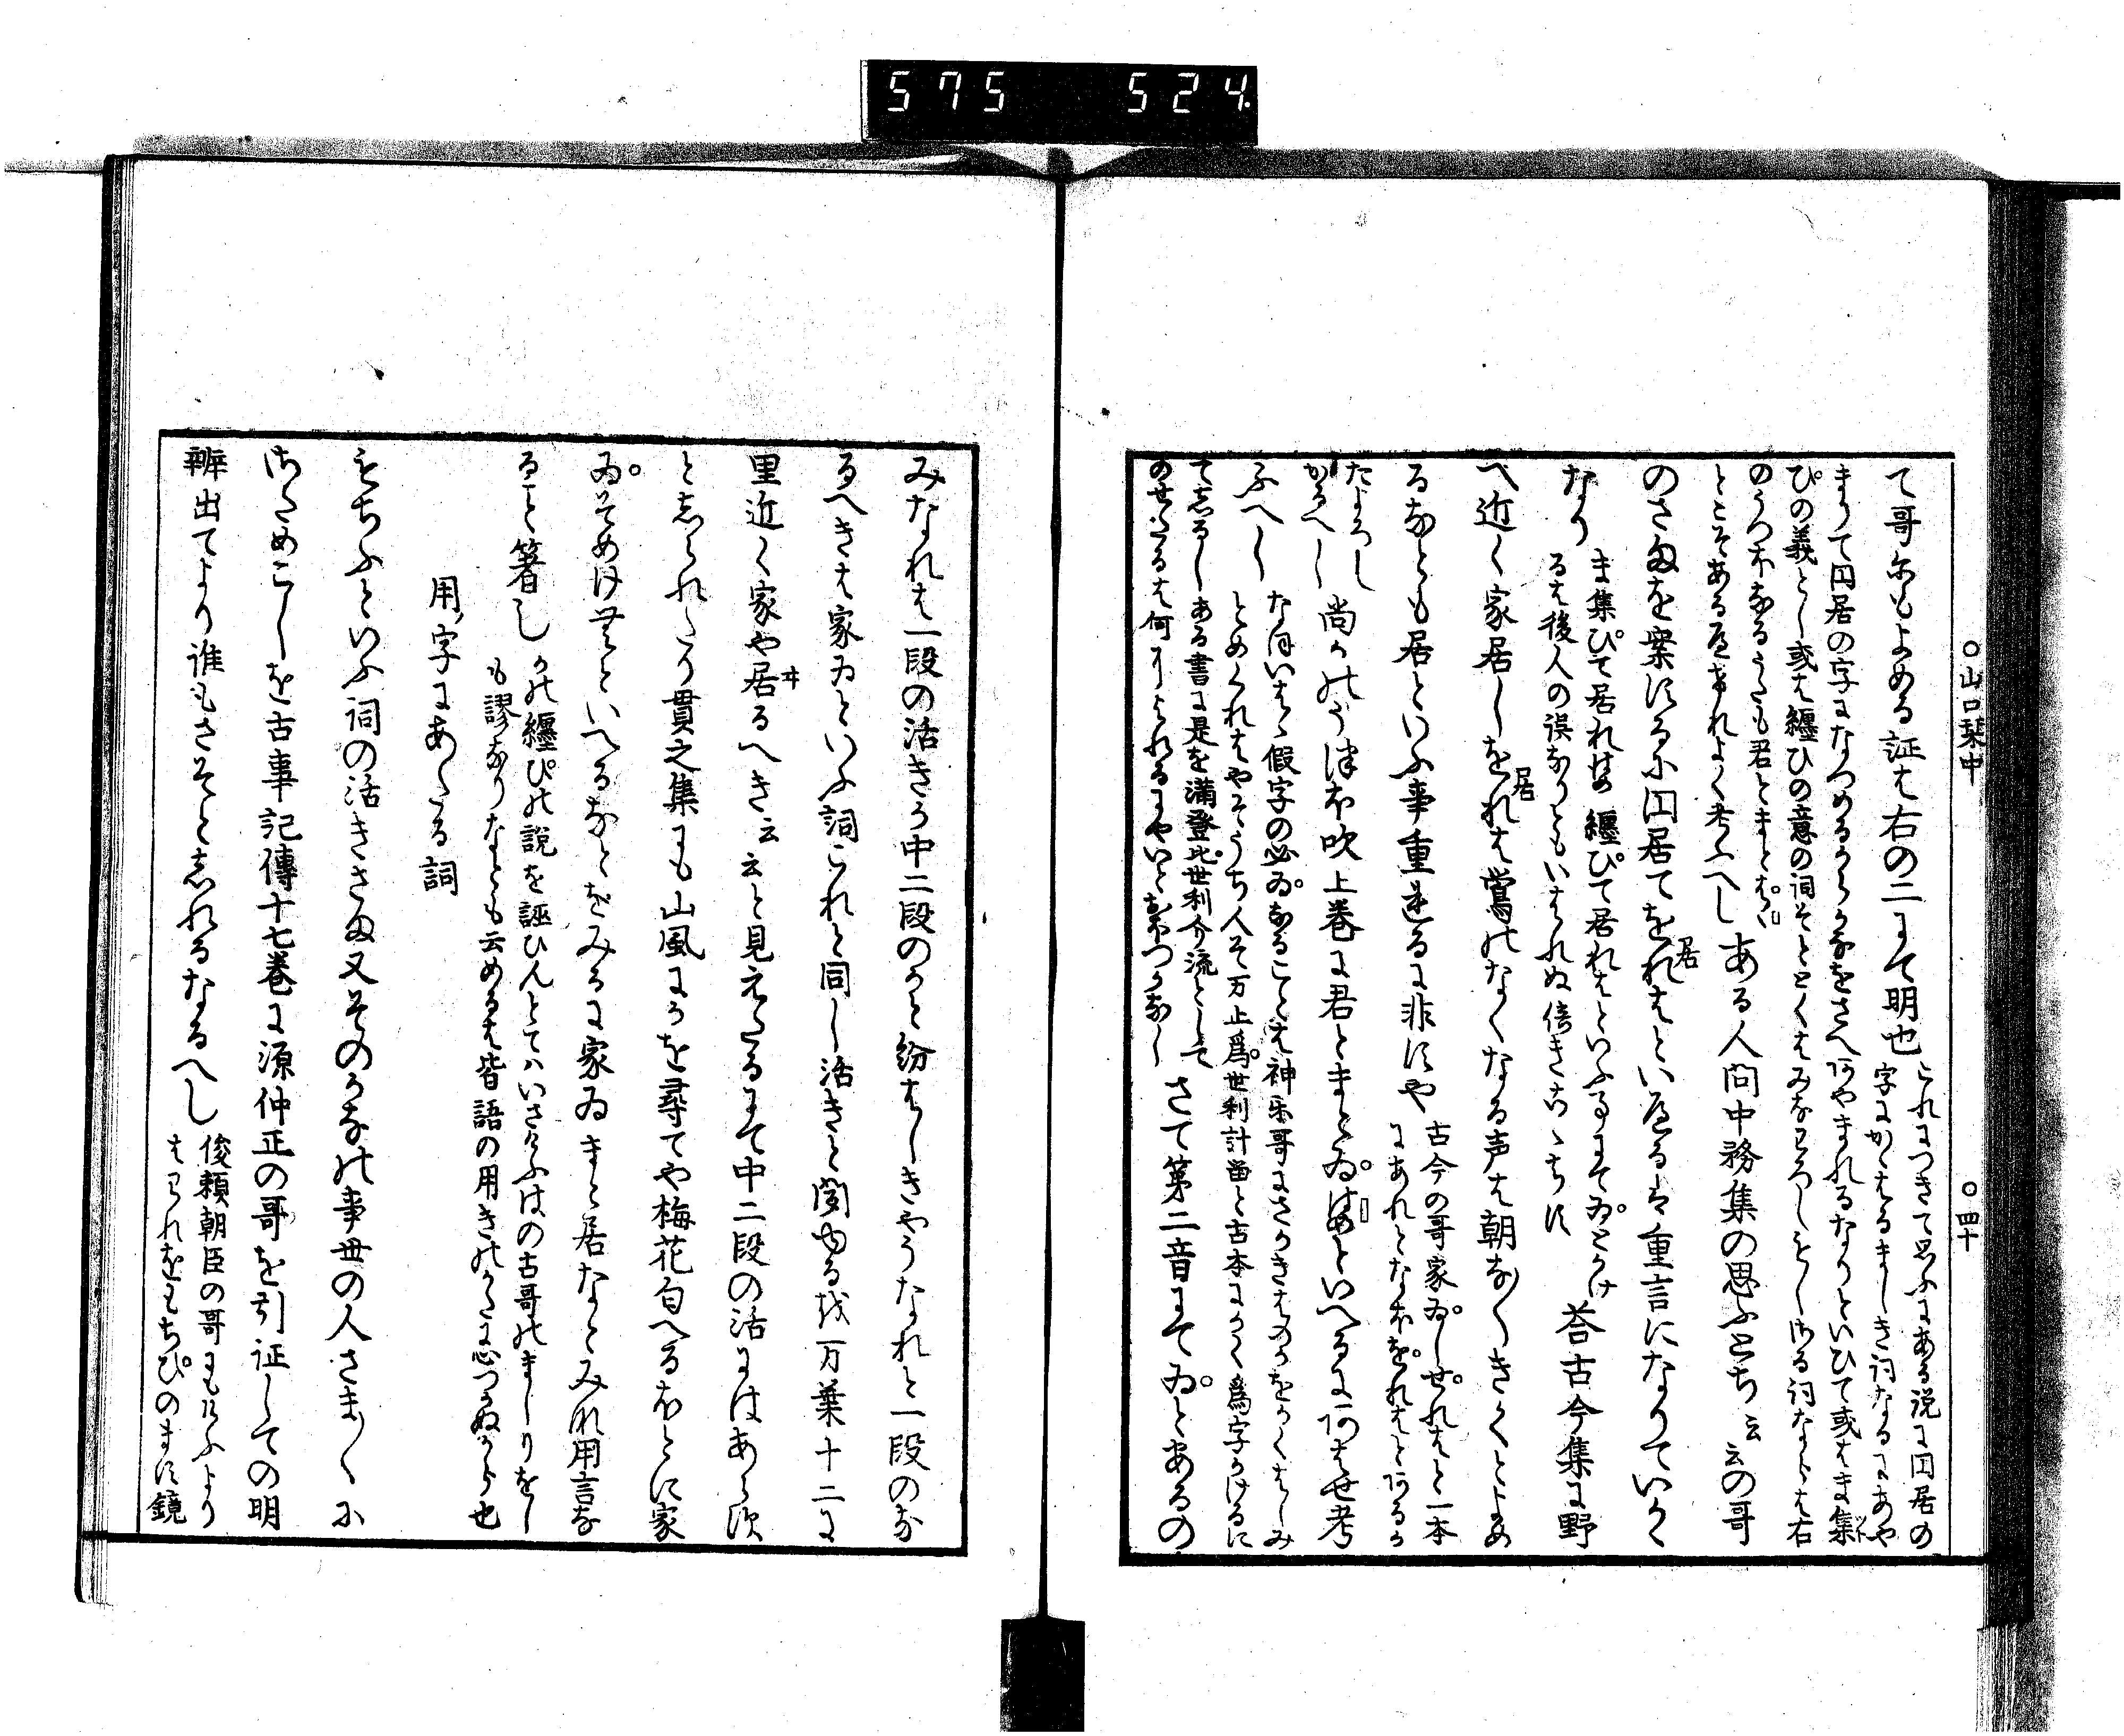 575 524.
○山口栞中 ○四十
て哥にもよめる証は右の二にて明也
これにつきて思ふにある説に円居の
字にかゝはるましき詞なるにあや
まりて円居の字になつめるからかなをさへあやまれるなりといひて或はま集
ひの義とし或は纏ひの意の詞そととくはみなわろしをし
とこそある
よく考ふへし ある人問中務集の思ふとち云云の哥
のさまを案するに円居てをれはといへるは重言になりていかゝ
居
なり
ま集ひて居れはの纏ひて居れはといふ
るは後人の誤なりともいはれぬ
答古今集に野
へ近く家居しをれは鶯のなくなる声は朝な〳〵きくとよめ
居
るなとも居といふ事重なるに非すや
古今の哥家ゐしせれはと一本
にあれとなほをれはとあるか
たよろし
かるへし
尚かのうつほ吹上巻に君とまとゐはあといへるにあはせ考
ふへし
なほいはゝ假字の必ゐなることは神楽哥にさかきはのかをかくはしみ
とめくれはやそうち人そ万止爲世利計留と古本にかく爲字かけるに
て志るしある書に是を満登比世利介流として
のせたるは何によれるにやいとおほつかなし
さて第二音にてゐとあるの
みなれは一段の活きか中二段のかと紛はしきやうなれと一段のな
るへきは家ゐといふ詞これと同し活きと聞ゆるを万葉十二に
里近く家や居るへき云云と見えたるにて中二段の活にはあらす
ヰ
と志られたり貫之集にも山風にかを尋てや梅花匂へるほとに家
ゐそめけむといへるなとをみるに家ゐまと居なとみな用言な
ること著し
かの纏ひの説を誣ひんとてハいさゝふはの古哥のましりをし
も謬なりなとも云めるは皆語の用きのかたに心つかぬから也
用字にあたる詞
もちふといふ詞の活きさま又そのかなの事世の人さま〳〵に
さためこしを古事記傳十七巻に源仲正の哥を引証しての明
辨出てより誰もさそと志れるなるへし
俊頼朝臣の哥にもけふより
はわれをもちひのます鏡